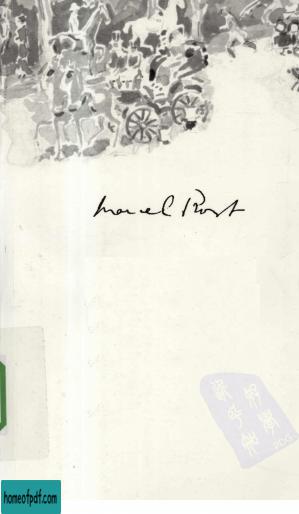 Marcel Proust
homeofpdf.com